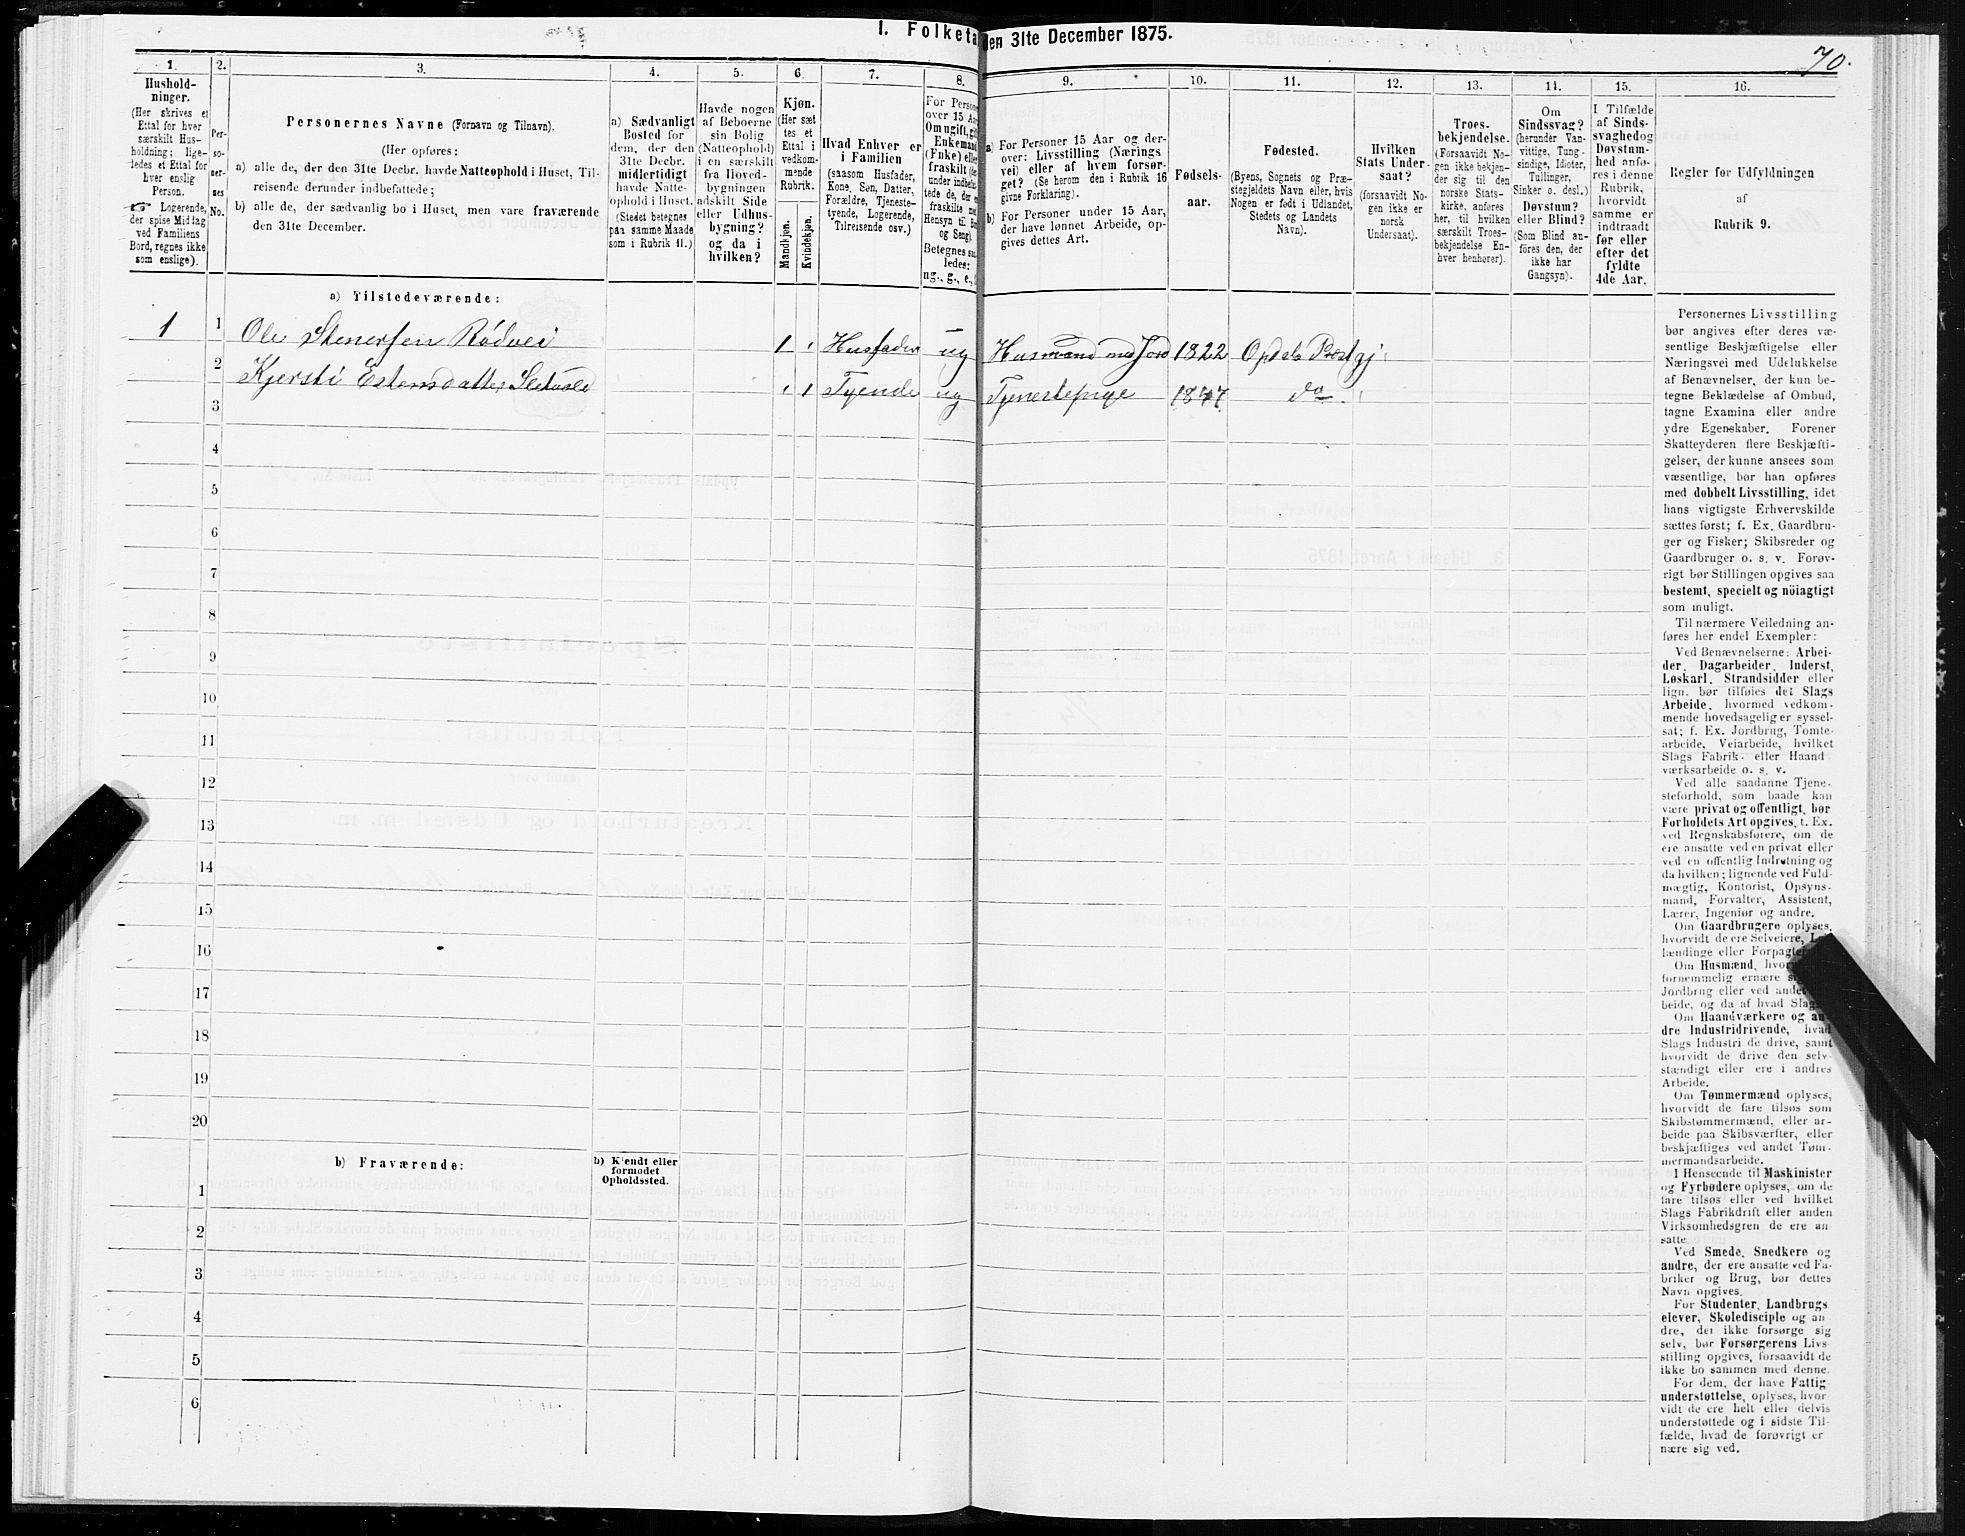 I. Folketa den 31te December 1875.
70.
1. 2. 3. 4. 5. 6. 7. 8. 9. 10. 11. 12. 13. 14. 15. 16.
Hushold-
ninger.
(Her skrives et
Ettal for hver
særskilt Hus-
holdning; lige-
ledes et Ettal for
hver enslig
Person.
☞ Logerende,
der spise Middag
ved Familiens
Bord, regnes ikke
som enslige).
Per-
so-
ner-
nes
No.
Personernes Navne (Fornavn og Tilnavn).
(Her opføres:
a) alle de, der den 31te Decbr. havde Natteophold i Huset, Til-
reisende derunder indbefattede;
b) alle de, der sædvanlig bo i Huset, men vare fraværende
den 31te December.
a) Sædvanligt
Bosted for
dem, der den
31te Decbr.
midlertidigt
havde Natte-
ophold i Huset.
(Stedet betegnes
paa samme Maade
som i Rubrik 11.)
Havde nogen
af Beboerne
sin Bolig
(Natteophold)
i en særskilt
fra Hoved-
bygningen
adskilt Side
eller Udhus-
bygning?
og da i
hvilken?
Kjøn.
(Her sæt
tes et
Ettal i
vedkom-
mende
Rubrik.
Mandkjøn.
Kvindekjøn.
Hvad Enhver er
i Familien
(saasom Husfader,
Kone, Søn, Datter,
Forældre, Tjeneste-
tyende, Logerende,
Tilreisende osv.)
For Person
over 15 Aa
Om ugift, gif
Enkemand
(Enke) elle
fraskilt (de
under indbefa
tede de, der e
fraskilte me
Hensyn til Bo
og Seng).
Betegnes saa
ledes:
ug., g., e.,
a) For Personer 15 Aar og der-
over: Livsstilling (Nærings
vei) eller af hvem forsør-
get? (Se herom den i Rubrik 16
givne Forklaring).
b) For Personer under 15 Aar,
der have lønnet Arbeide, op-
gives dettes Art.
Fødsels-
aar.
Fødested.
(Byens, Sognets og Præ-
stegjeldets Navn eller, hvis
Nogen er født i Udlandet,
Stedets og Landets
Navn).
Hvilken
Stats Under-
saat?
(forsaavidt No-
gen ikke er
norsk
Undersaat).
Troes-
bekjendelse.
(Forsaavidt No-
gen ikke bekjen-
der sig til den
norske Stats-
kirke, anføres
her, til hvilken
særskilt Troes-
bekjendelse En-
hver henhører).
Om
Sindssvag?
(herunder Van-
vittige, Tung-
sindige, Idioter,
Tullinger,
Sinker o. desl.)
Døvstum?
eller Blind?
(Som Blind an-
føres den, der
ikke har
Gangsyn).
I Tilfælde
af Sinds-
svaghed og
Døvstum-
hed anfø-
res i denne
Rubrik,
hvorvidt
samme er
indtraadt
før eller
efter det
fyldte
4de Aar.
Regler før Udfyldningen
af
Rubrik 9.
a) Tilstedeværende:
1 1 Ole Stenersen Rødvei 1 Husfader ug Husmand med Jord 1822 Opdals Præstgj
2 Kjersti Estensdatter Sletvold 1 Tyende ug Tjenestepige 1847 do
3
4
5
6
7
8
9
10
11
12
13
14
15
16
17
18
19
20
b) Fraværende:
b) Kjendt eller
formodet
Opholdssted.
1
2
3
4
5
6
Personernes Livsstilling
bør angives efter deres væ-
sentlige Beskjæftigelse eller
Næringsvei med Udelukkelse
af Benævnelser, der kun be-
tegne Beklædelse af Ombud,
tagne Examina eller andre
ydre Egenskaber. Forener
Skatteyderen flere Beskjæfti-
gelser, der kunne ansees som
væsentlige, bør han opføres
med dobbelt Livsstilling, idet
hans vigtigste Erhvervskilde
sættes først; f. Ex. Gaardbru-
ger og Fisker; Skibsreder og
Gaardbruger o. s. v. Forøv-
rigt bør Stillingen opgives saa
bestemt, specielt og nöiagtigt
som muligt.
Til nærmere Veiledning an-
føres her endel Exempler:
Ved Benævnelserne: Arbei-
der, Dagarbeider, Inderst,
Løskarl, Strandsidder eller
lign. bør tilføies det Slags
Arbeide, hvormed vedkom-
mende hovedsagelig er syssel-
sat; f. Ex. Jordbrug, Tomte-
arbeide, Veiarbeide, hvilket
Slags Fabrik- eller Haand
værksarbeide o. s. v.
Ved alle saadanne Tjene-
steforhold, som baade kan
være privat og offentligt, bør
Forholdets Art opgives, t. Ex.
ved Regnskabsførere, om de
ere ansatte ved en privat eller
ved en offentlig Indretning og
da hvilken; lignende ved Fuld-
mægtig, Kontorist, Opsyns-
mand, Forvalter, Assistent,
Lærer, Ingeniør og andre.
Om Gaardbrugere oplyses,
hvorvidt de ere Selveiere, Lei-
lændinge eller Forpagte
Om Husmænd, hvor
fornemmelig ernære s
Jordbrug eller ved andet
beide, og da af hvad Slags
Om Haandværkere og an-
dre Industridrivende, hvad
Slags Industri de drive, samt
hvorvidt de drive den selv-
stændigt eller ere i andres
Arbeide.
Om Tømmermænd oplyses,
hvorvidt de fare tilsøs som
Skibstømmermænd, eller ar-
beide paa Skibsværfter, eller
beskjæftiges ved andet Tøm-
mermandsarbeide.
I Henseende til Maskinister
og Fyrbødere oplyses, om de
fare tilsøs eller ved hvilket
Slags Fabrikdrift eller anden
Virksomhedsgren de ere an-
satte
Ved Smede, Snedkere og
andre, der ere ansatte ved Fa-
briker og Brug, bør dettes
Navn opgives.
For Studenter, Landbrugs
elever, Skoledisciple og an
dre, der ikke forsørge sig
selv, bør Forsørgerens Livs-
stilling opgives, forsaavidt de
ikke bo sammen med denne.
For dem, der have Fattig
understøttelse, oplyses, hvor-
vidt de ere helt eller delvis
understøttede og i sidste Til-
fælde, hvad de forøvrigt er
nære sig ved.